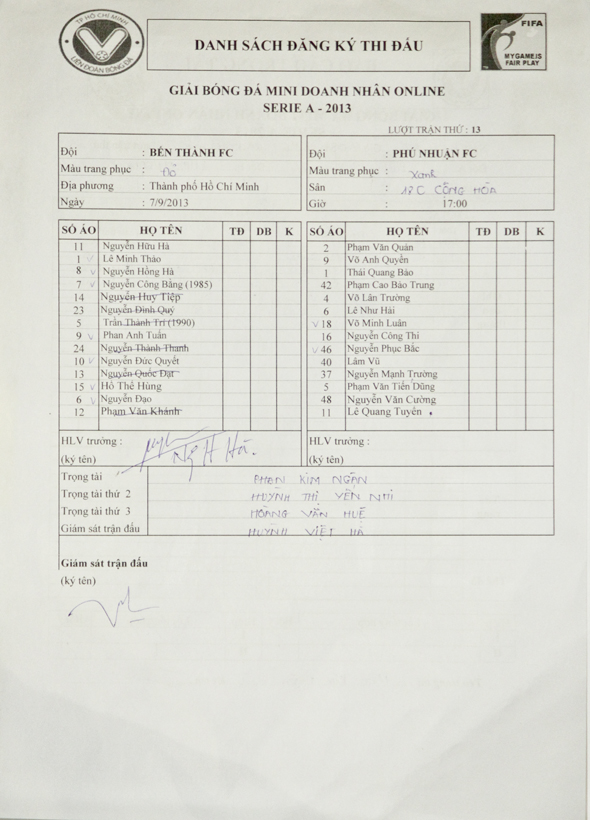 TP HỒ CHÍ MINH
LIÊN ĐOÀN BÓNG ĐÁ
DANH SÁCH ĐĂNG KÝ THI ĐẤU
FIFA
MY GAME IS
FAIR PLAY
GIẢI BÓNG ĐÁ MINI DOANH NHÂN ONLINE
SERIE A - 2013
LƯỢT TRẬN THỨ : 13
Đội : BẾN THÀNH FC
Màu trang phục : Đỏ
Địa phương : Thành phố Hồ Chí Minh
Ngày : 7/9/2013
Đội : PHÚ NHUẬN FC
Màu trang phục : Xanh
Sân : 18C CỘNG HÒA
Giờ : 17:00
SỐ ÁO HỌ TÊN TĐ DB K
11 Nguyễn Hữu Hà
1 v Lê Minh Thảo
8 v Nguyễn Hồng Hà
7 v Nguyễn Công Bằng (1985)
14 Nguyễn Huy Tiệp
23 Nguyễn Đình Quý
5 Trần Thành Trí (1990)
9 v Phan Anh Tuấn
24 Nguyễn Thành Thanh
10 v Nguyễn Đức Quyết
13 Nguyễn Quốc Đạt
15 v Hồ Thế Hùng
6 v Nguyễn Đạo
12 Phạm Văn Khánh
SỐ ÁO HỌ TÊN TĐ DB K
2 Phạm Văn Quản
9 Võ Anh Quyền
1 Thái Quang Bảo
42 Phạm Cao Bảo Trung
4 Võ Lân Trường
6 Lê Như Hải
v 18 Võ Minh Luân
16 Nguyễn Công Thi
v 46 Nguyễn Phục Bắc
40 Lâm Vũ
37 Nguyễn Mạnh Trường
5 Phạm Văn Tiến Dũng
48 Nguyễn Văn Cường
11 Lê Quang Tuyến
HLV trưởng :
(ký tên) Ng H Hà.
HLV trưởng :
(ký tên)
Trọng tài PHAN KIM NGÂN
Trọng tài thứ 2 HUỲNH THỊ YẾN NHI
Trọng tài thứ 3 HOÀNG VĂN HUẾ
Giám sát trận đấu HUỲNH VIỆT HÀ
Giám sát trận đấu
(ký tên)